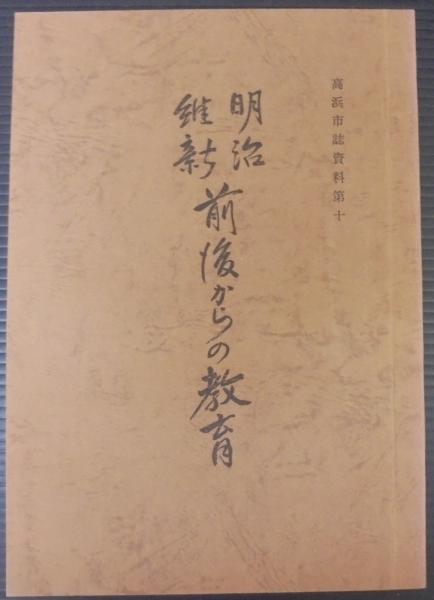 高浜市誌資料第十
明治
維新
前後からの教育